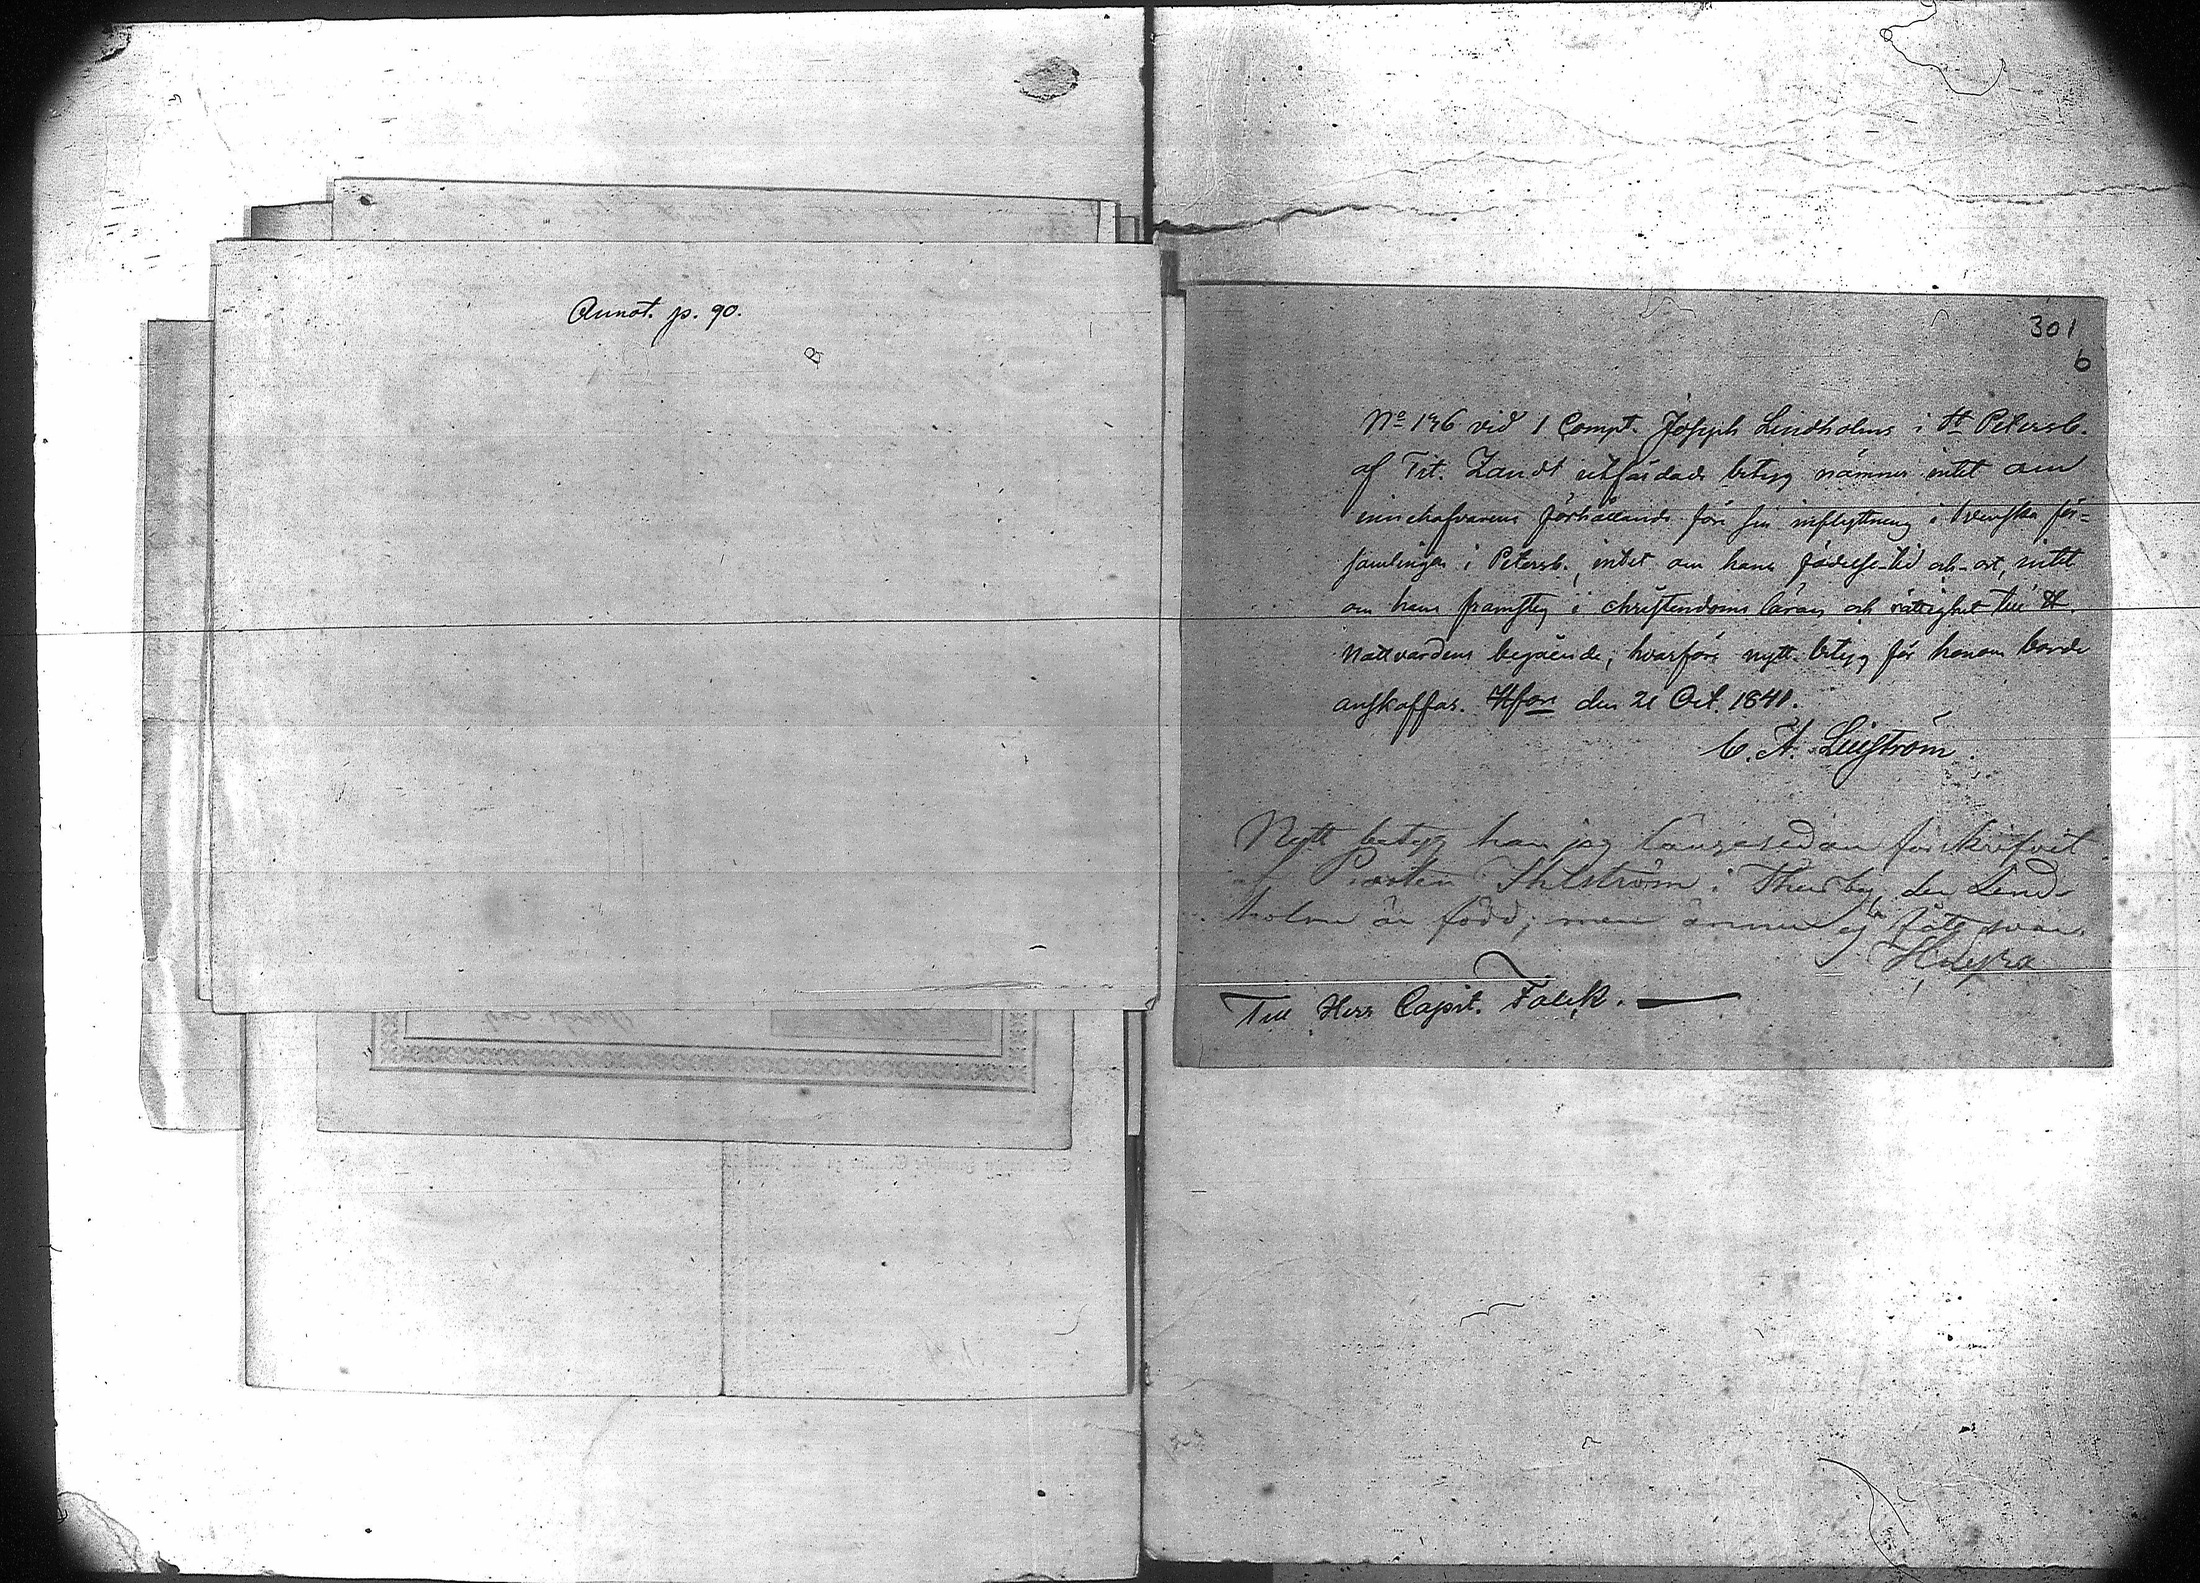 Annot. p. 90.
301
6
No 196 vid 1 Comp. Joseph Lindholms i St Petersb.
af Tit. Zandt utfärdade betyg nämner intet om
innehafvarens förhållande före sin inflyttning i Svenska för=
samlingen i Petersb., intet om hans födelse-tid och -ort, intet
om hans framsteg i christendoms läran och rättighet till H.
Nattvardens begående; hvarföre nytt betyg för honom borde
anskaffas. Hfors den 21 Oct. 1841.
C. A.
Nytt betyg har jag länge sedan förskrifvit
af Prosten Ihlström i Thusby, der Lind-
holm är född; men ännu ej fått svar.
Till Herr Capit. Falck.